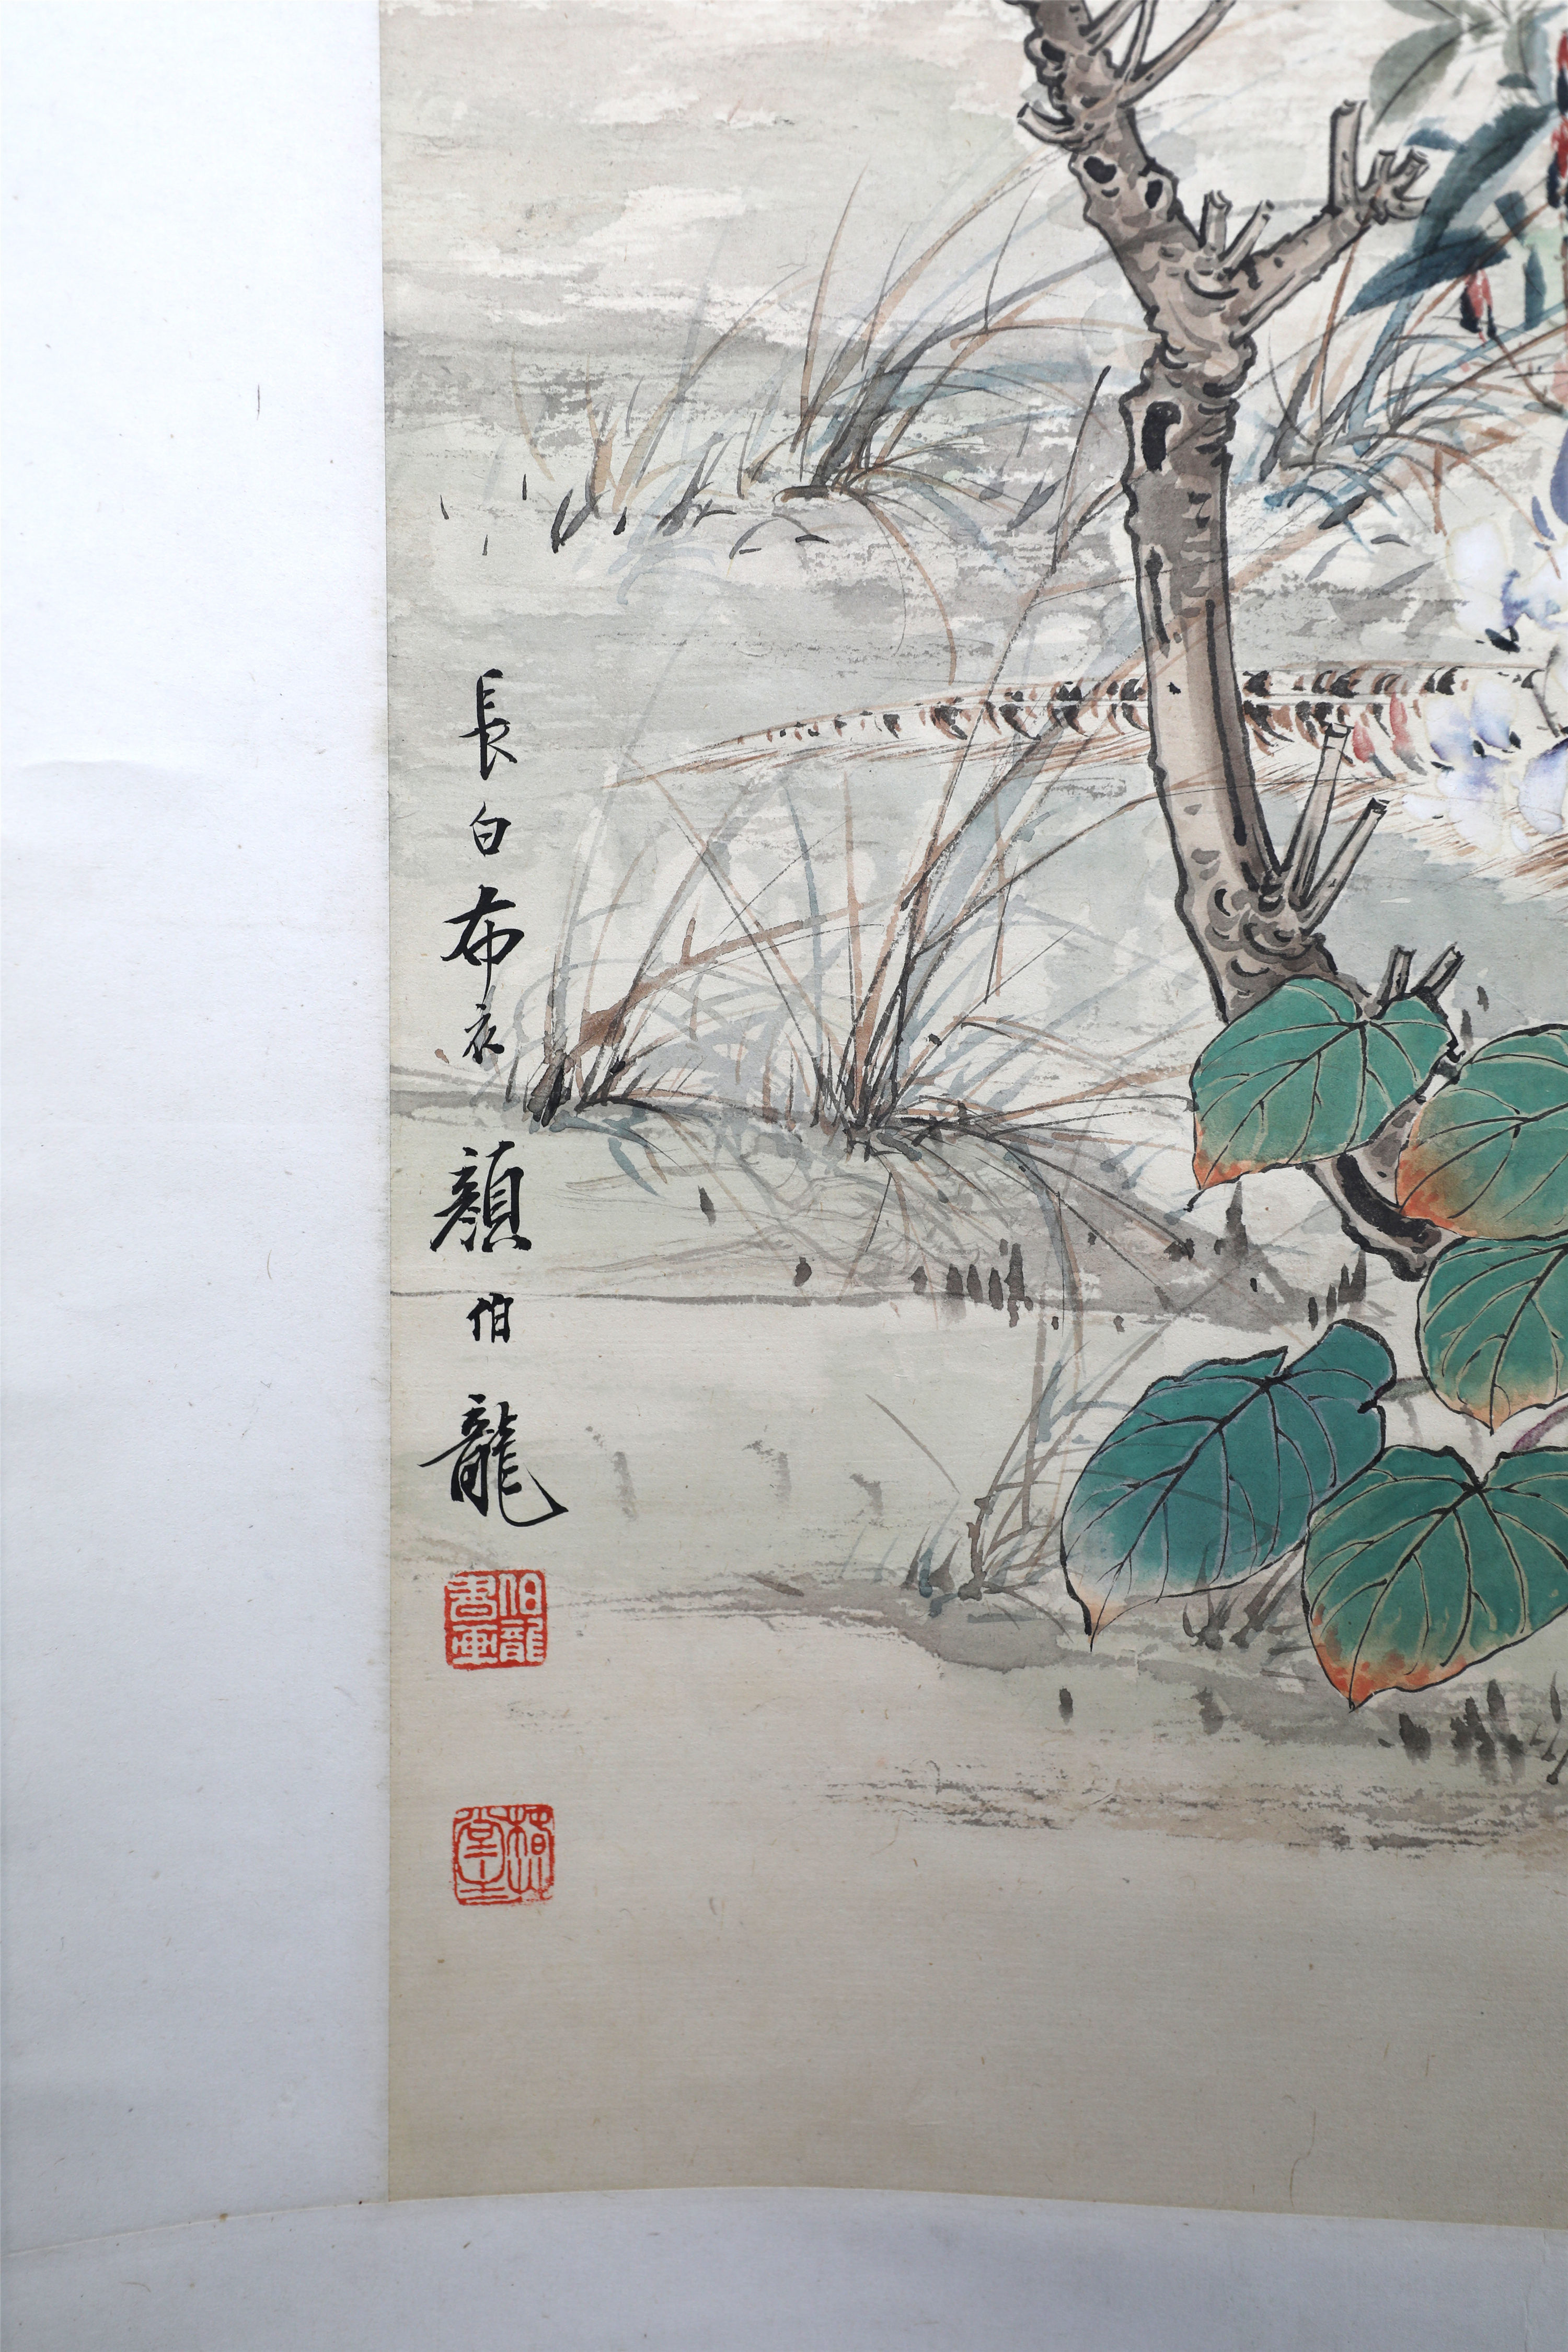 長白布衣顏伯龍
伯龍書画